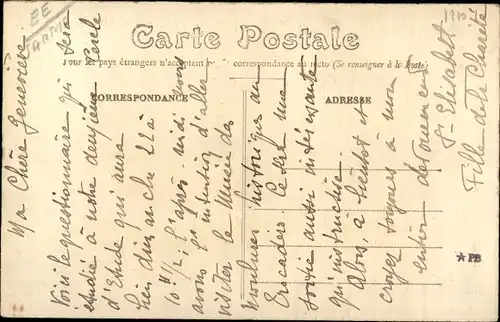 EE
SARTHE
1210
Carte Postale
Tous les pays étrangers n'acceptent pas correspondance au recto (Se renseigner à la Poste)
CORRESPONDANCE
ADRESSE
Ma Chère Geneviève
Voici le questionnaire qui sera
étudié à notre deuxième Cercle
d'Etude qui aura
lieu dimanche 22 à
10h 1/2; l'après midi nous
avons l'intention d'aller
visiter le Musée des
Moulures historiques au
Trocadero. Ce sera une
sortie aussi intéressante
qu'instructive.
Alors, à bientôt et
croyez toujours à mon
entier dévouement
Sr Elisabeth
Fille de la Charité
★PB